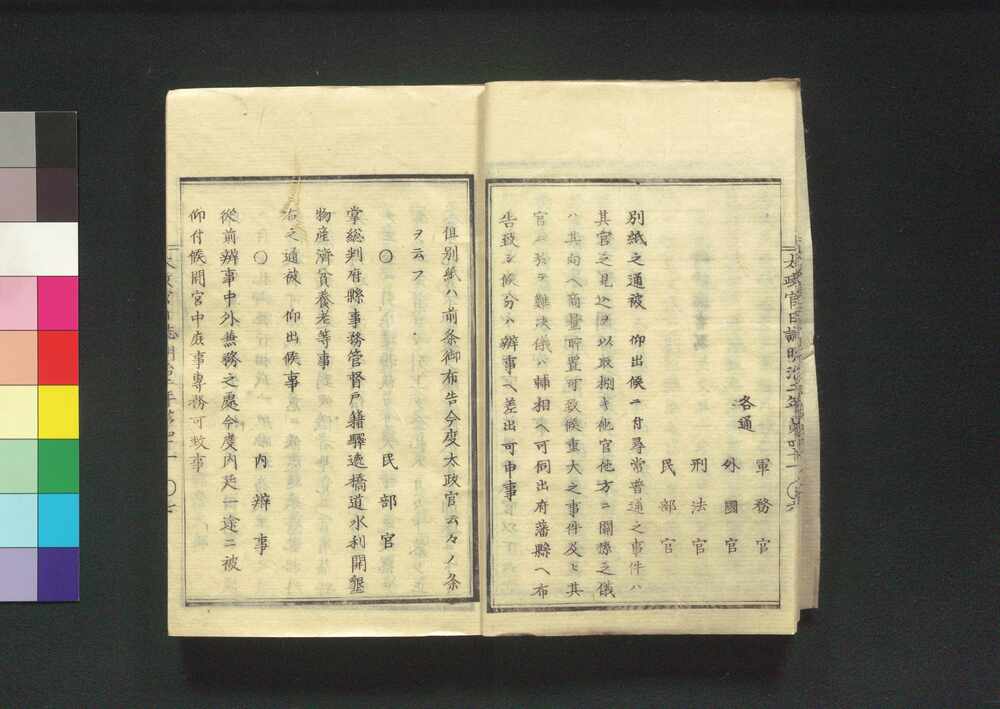 太政官日誌明治二年第四十一 〇六
軍務官
外國官
各通
刑法官
民部官
別紙之通被 仰出候ニ付尋常普通之事件ハ
其官之見込ヲ以取捌キ他官他方ニ關渉之儀
ハ其向ヘ商量所置可致候重大之事件及ヒ其
官ニ於テ難決儀ハ輔相ヘ可伺出府藩縣ヘ布
告致シ候分ハ辨事ヘ差出可申事
但別紙ハ前条御布告今度太政官云々ノ条
ヲ云フ
〇 民部官
掌総判府縣事務管督戸籍驛逓橋道水利開墾
物産濟貧養老等事
治之通被 仰出候事
〇 内辨事
從前辨事中外兼務之處今度内廷一途ニ被
仰付候間宮中庶事專務可致事